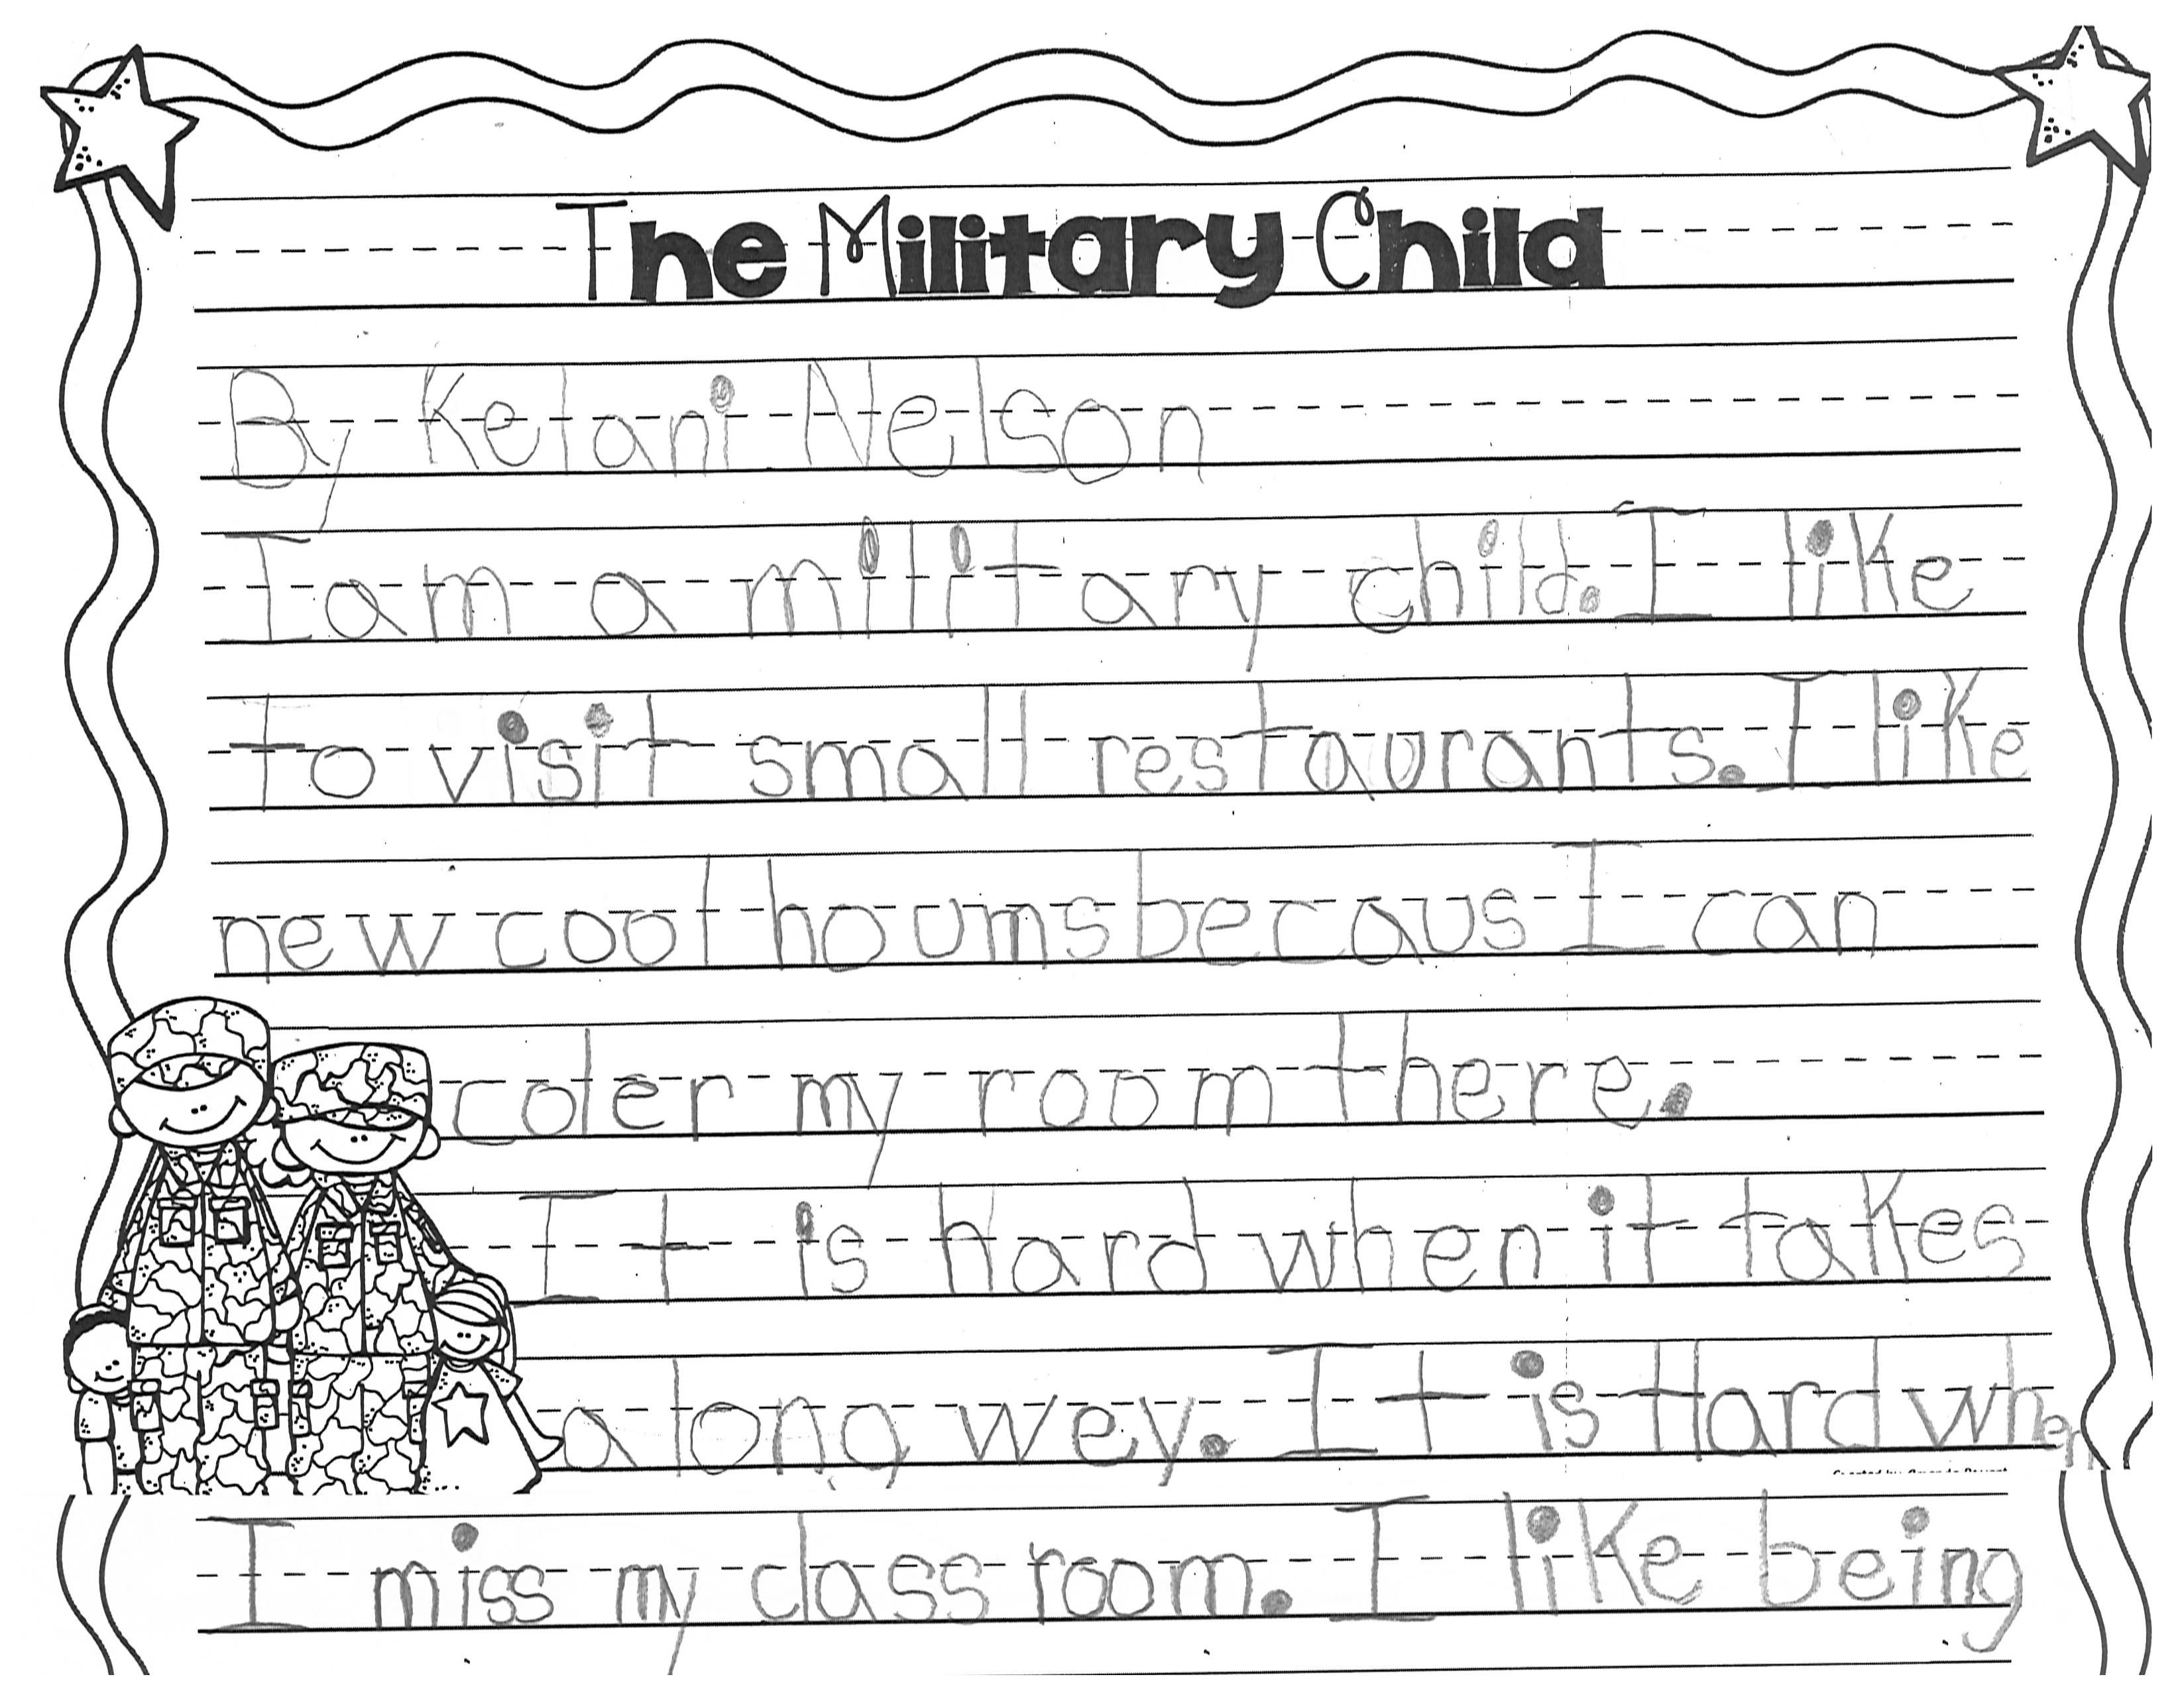 The Military Child
By Kelani Nelson
I am a military child. I like
to visit small restaurants. I like
new cool houms becaus I can
coler my room there.
It is hard when it takes
a long wey. It is Hard when
I miss my class room. I like being